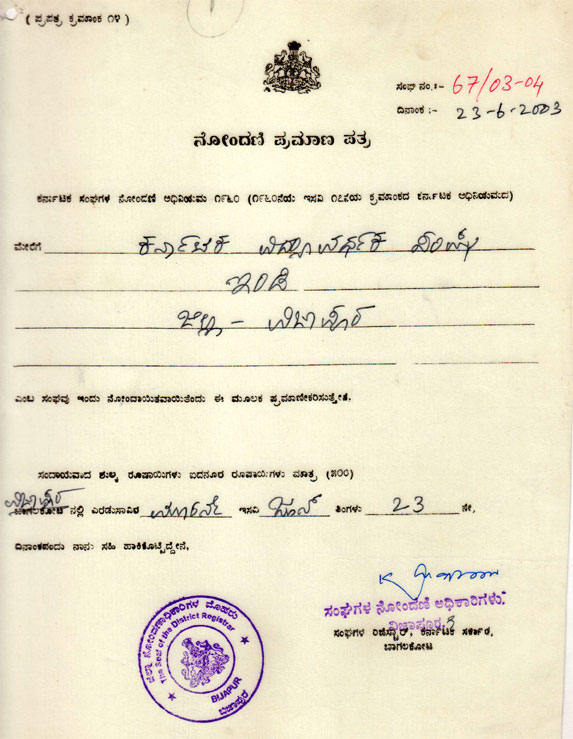 ( ಪ್ರಪತ್ರ ಕ್ರಮಾಂಕ ೧೪ )
ಸಂಘ ನಂ.:- 67/03-04
ದಿನಾಂಕ :- 23-6-2003
ನೋಂದಣಿ ಪ್ರಮಾಣ ಪತ್ರ
ಕರ್ನಾಟಕ ಸಂಘಗಳ ನೋಂದಣಿ ಅಧಿನಿಯಮ ೧೯೬೦ (೧೯೬೦ನೆಯ ಇಸವಿ ೧೭ನೆಯ ಕ್ರಮಾಂಕದ ಕರ್ನಾಟಕ ಅಧಿನಿಯಮದ)
ಮೇರೆಗೆ ಕರ್ನಾಟಕ ವಿದ್ಯಾವರ್ಧಕ ಸಂಸ್ಥೆ
ಇಂಡಿ
ಜಿಲ್ಲಾ - ವಿಜಾಪೂರ
ಎಂಬ ಸಂಘವು ಇಂದು ನೋಂದಾಯಿತವಾಯಿತೆಂದು ಈ ಮೂಲಕ ಪ್ರಮಾಣೀಕರಿಸುತ್ತೇನೆ.
ಸಂದಾಯವಾದ ಶುಲ್ಕ ರೂಪಾಯಿಗಳು ಐದನೂರ ರೂಪಾಯಿಗಳು ಮಾತ್ರ (೫೦೦)
ವಿಜಾಪೂರ
ಬಾಗಲಕೋಟ ನಲ್ಲಿ ಎರಡುಸಾವಿರ ಮೂರನೇ ಇಸವಿ ಜೂನ್ ತಿಂಗಳು 23 ನೇ,
ದಿನಾಂಕದಂದು ನಾನು ಸಹಿ ಹಾಕಿಕೊಟ್ಟಿದ್ದೇನೆ,
ಸಂಘಗಳ ನೋಂದಣಿ ಅಧಿಕಾರಿಗಳು.
ವಿಜಾಪೂರ
ಸಂಘಗಳ ರಿಜಿಸ್ಟ್ರಾರ್, ಕರ್ನಾಟಕ ಸರ್ಕಾರ,
ಬಾಗಲಕೋಟ
ಜಿಲ್ಲಾ ನೋಂದಣಾಧಿಕಾರಿಗಳ ಮೊಹರು
The Seal of the District Registrar
BIJAPUR
ಬಿಜಾಪುರ